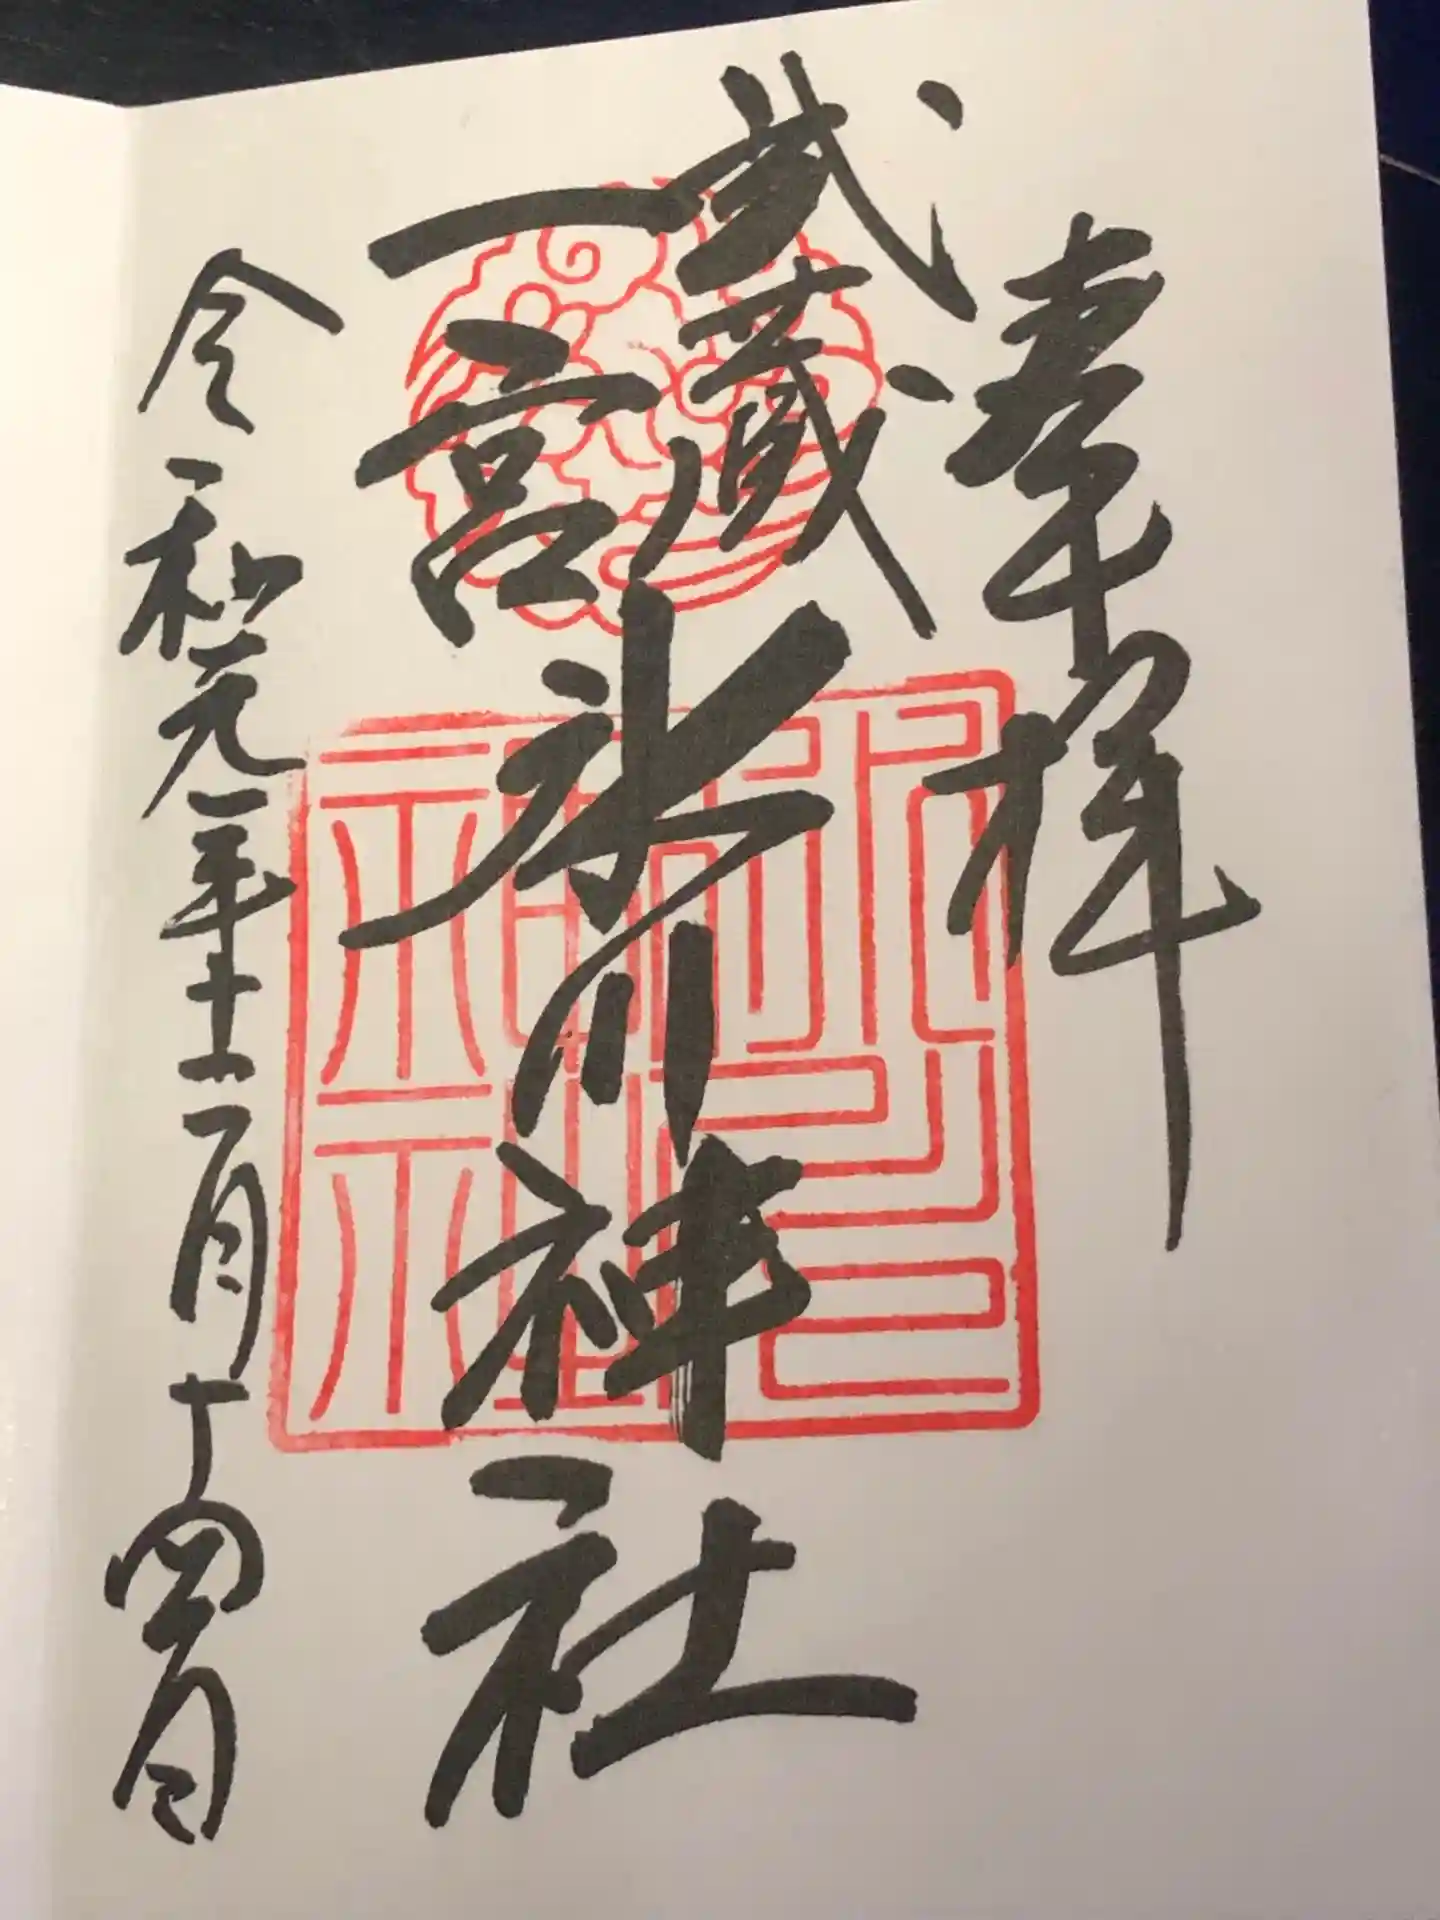 奉拝
武蔵
一宮
氷川神社
令和元年十一月十四日
氷川神社